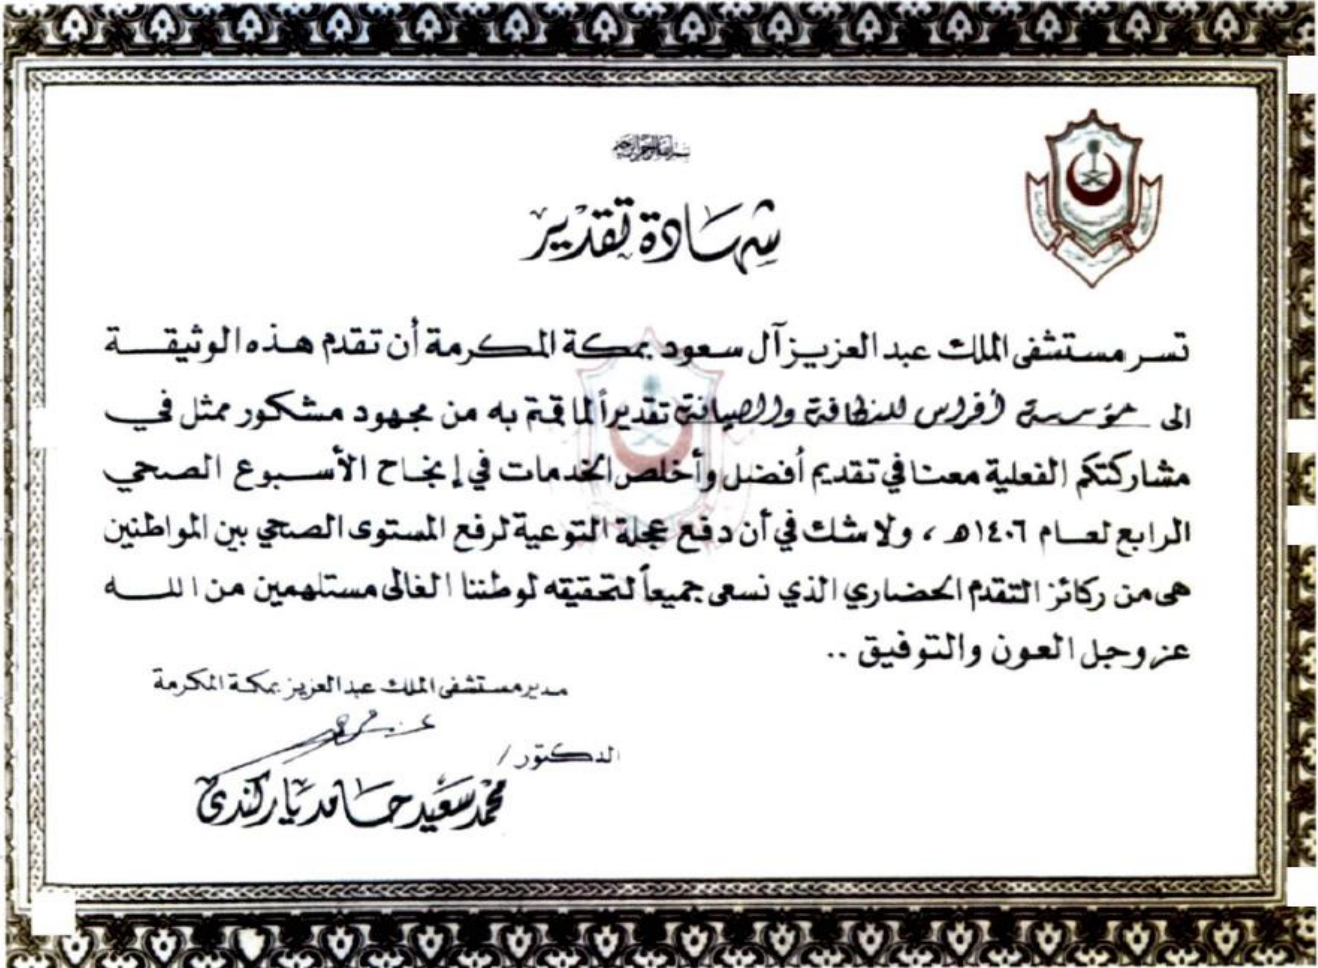 بسم الله الرحمن الرحيم
شهادة تقدير
تسر مستشفى الملك عبد العزيز آل سعود بمكة المكرمة أن تقدم هذه الوثيقة
الى مؤسسة أفراس للنظافة والصيانة تقديراً لما قمتم به من مجهود مشكور ممثل في
مشاركتكم الفعلية معنا في تقديم أفضل وأخلص الخدمات في إنجاح الأسبوع الصحي
الرابع لعام ١٤٠٦هـ ، ولا شك في أن دفع عجلة التوعية لرفع المستوى الصحي بين المواطنين
هى من ركائز التقدم الحضاري الذي نسعى جميعاً لتحقيقه لوطننا الغالى مستلهمين من الله
عز وجل العون والتوفيق ..
مدير مستشفى الملك عبد العزيز بمكة المكرمة
الدكتور /
محمد سعيد حامد ياركندى